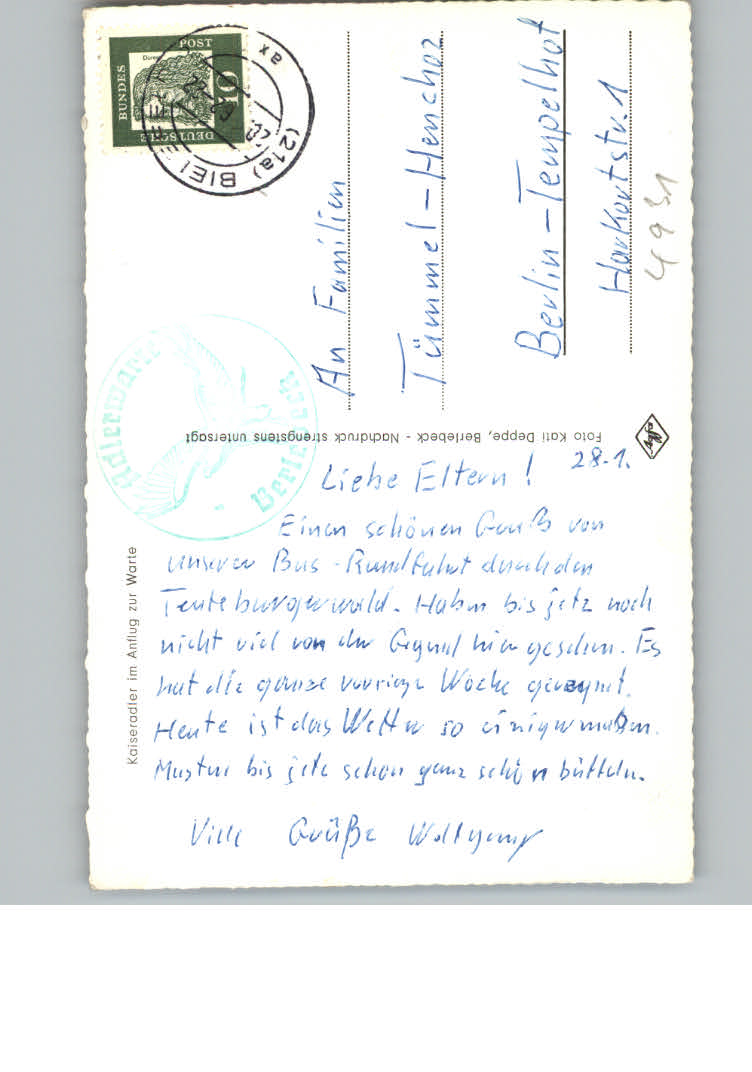 28.1.
Liebe Eltern!
Einen schönen Gruß von
unserer Bus-Rundfahrt durch den
Teuteburgerwald. Haben bis jetz noch
nicht viel von der Gegend hier gesehen. Es
hat die ganze vorrige Woche geregnet.
Heute ist das Wetter so einigermaßen.
Musten bis jetz schon ganz schön büffeln.
Viele Grüße Wolfgang
An Familien
Tümmel-Henchoz
Berlin-Tempelhof
Harkortstr. 1
4931
Kaiseradler im Anflug zur Warte
Foto Kati Deppe, Berlebeck - Nachdruck strengstens untersagt
Adlerwarte
Berlebeck
DEUTSCHE
BUNDES
POST
Dürer
10
(21a) BIELEFELD
ax